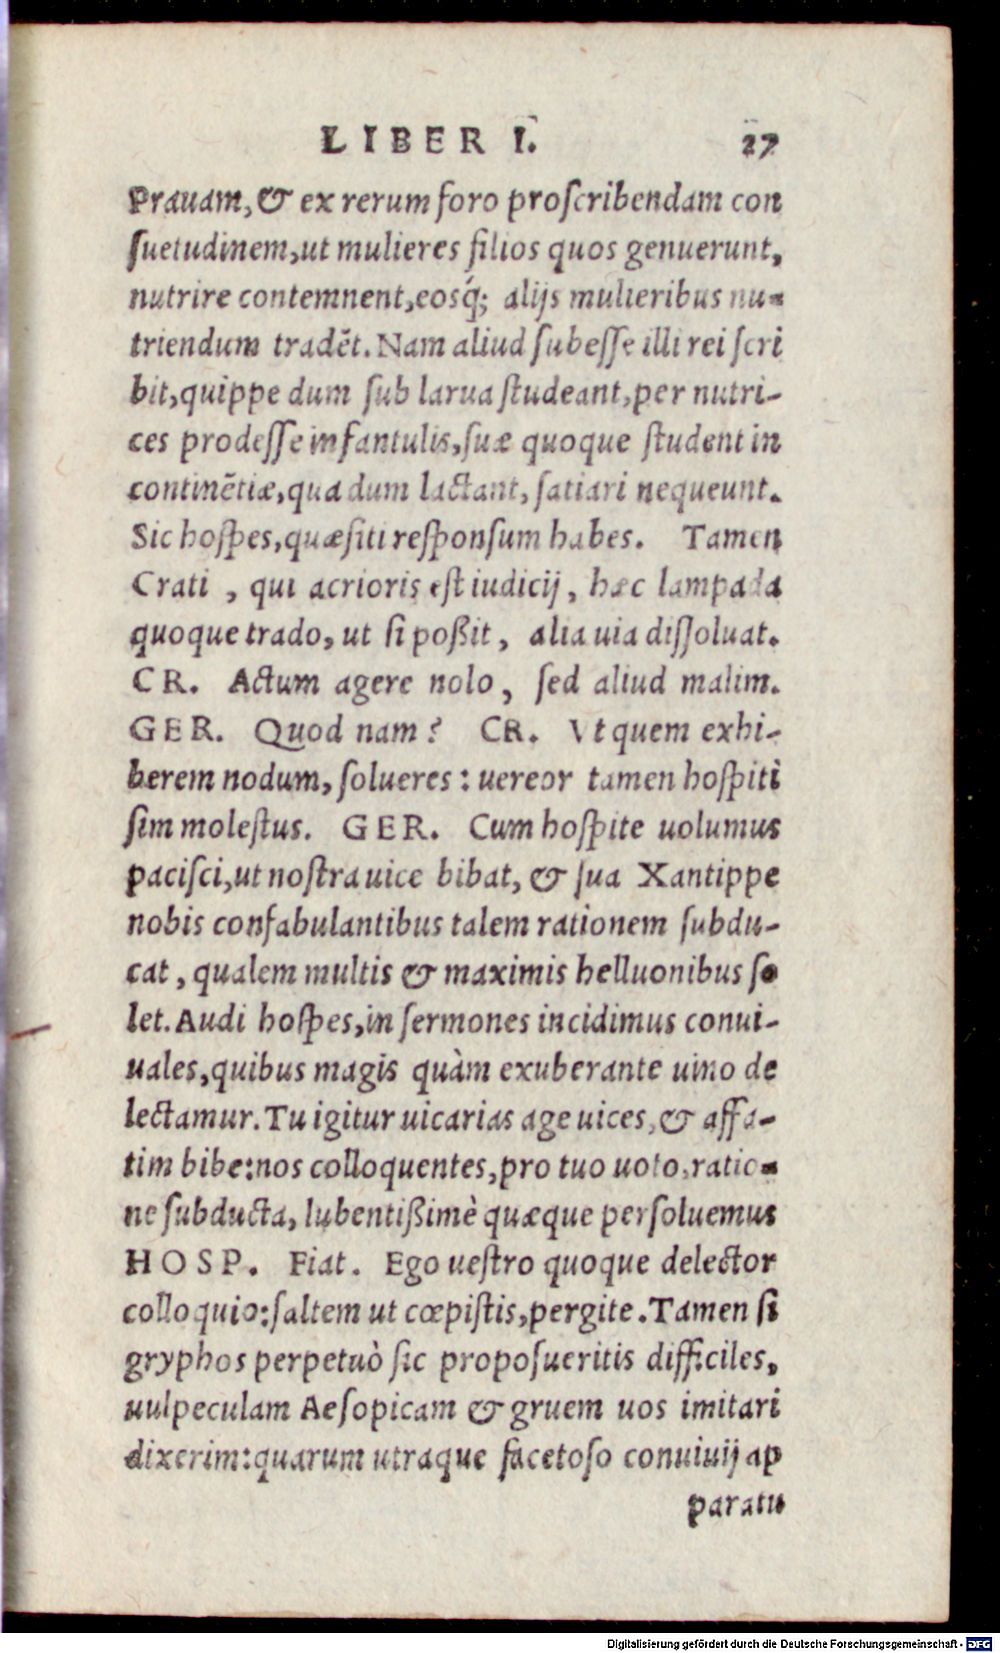 LIBER I. 27
Prauam, & ex rerum foro proſcribendam con
ſuetudinem, ut mulieres filios quos genuerunt,
nutrire contemnent, eosq́; alijs mulieribus nu-
triendum tradēt. Nam aliud ſubeſſe illi rei ſcri
bit, quippe dum ſub larua ſtudeant, per nutri-
ces prodeſſe infantulis, ſuæ quoque ſtudent in
continētiæ, qua dum lactant, ſatiari nequeunt.
Sic hoſpes, quæſiti reſponſum habes. Tamen
Crati, qui acrioris eſt iudicij, hæc lampada
quoque trado, ut ſi poßit, alia uia diſſoluat.
CR. Actum agere nolo, ſed aliud malim.
GER. Quod nam? CR. Vt quem exhi-
berem nodum, ſolueres: uereor tamen hoſpiti
ſim moleſtus. GER. Cum hoſpite uolumus
paciſci, ut noſtra uice bibat, & ſua Xantippe
nobis confabulantibus talem rationem ſubdu-
cat, qualem multis & maximis helluonibus ſo
let. Audi hoſpes, in ſermones incidimus conui-
uales, quibus magis quàm exuberante uino de
lectamur. Tu igitur uicarias age uices, & affa-
tim bibe: nos colloquentes, pro tuo uoto, ratio-
ne ſubducta, lubentißimè quæque perſoluemus
HOSP. Fiat. Ego ueſtro quoque delector
colloquio: ſaltem ut cœpiſtis, pergite. Tamen ſi
gryphos perpetuò ſic propoſueritis difficiles,
uulpeculam Aeſopicam & gruem uos imitari
dixerim: quarum utraque facetoſo conuiuij ap
paratu
Digitalisierung gefördert durch die Deutsche Forschungsgemeinschaft - DFG